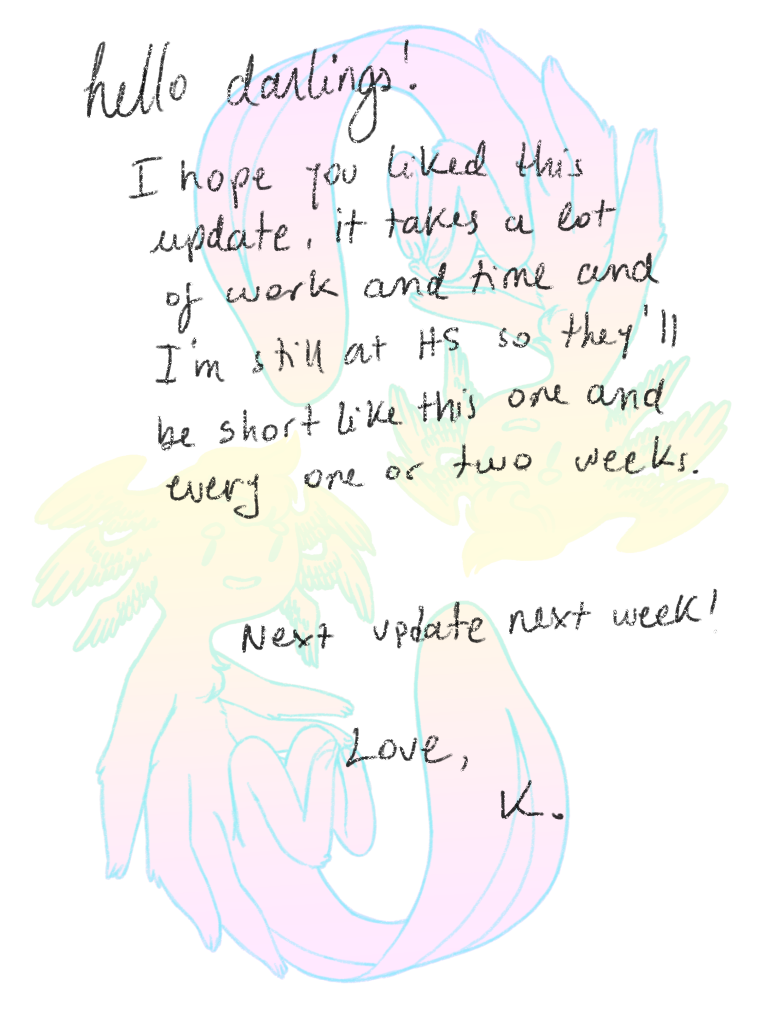 hello darlings!
I hope you liked this
update, it takes a lot
of work and time and
I'm still at HS so they'll
be short like this one and
every one or two weeks.
Next update next week!
Love,
K.